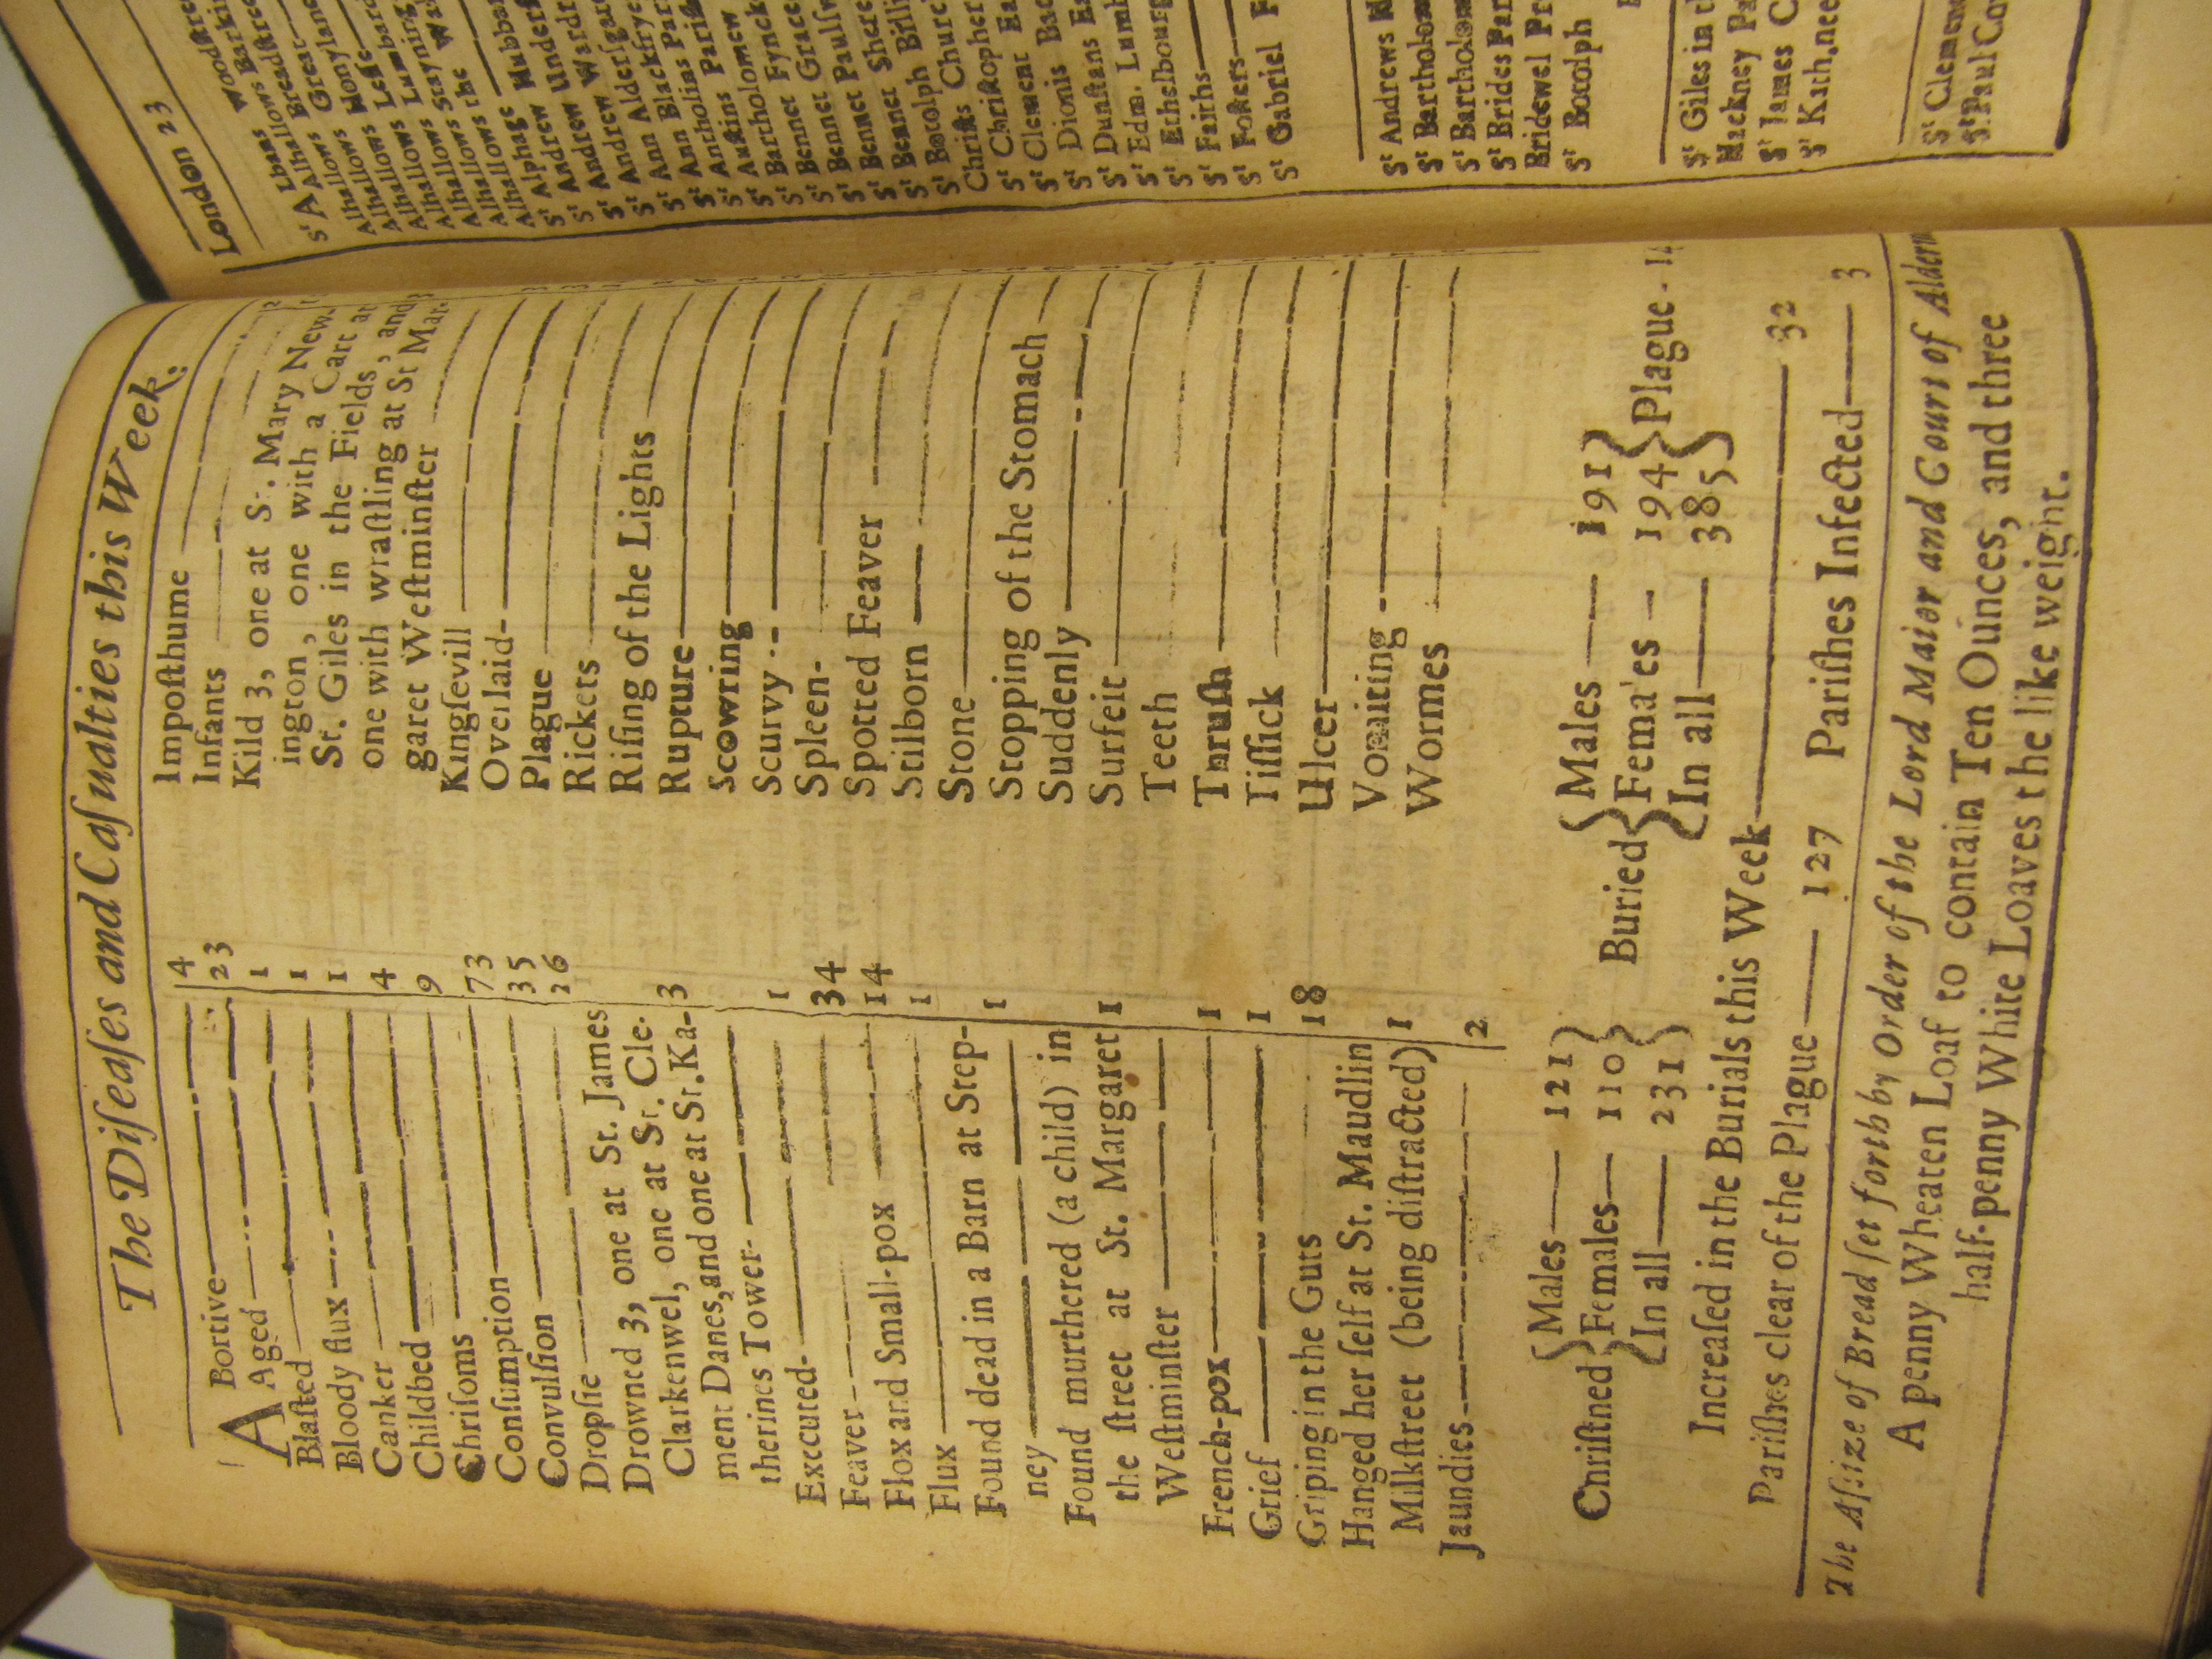 The Diſeaſes and Caſualties this Week.
ABortive 4
Aged 23
Blaſted 1
Bloody flux 1
Canker 1
Childbed 4
Chriſoms 9
Conſumption 73
Convulſion 35
Dropſie 26
Drowned 3, one at St. James
Clarkenwel, one at St. Cle-
ment Danes, and one at St. Ka- 3
therines Tower
Executed 1
Feaver 34
Flox and Small-pox 14
Flux 1
Found dead in a Barn at Step-
ney 1
Found murthered (a child) in
the ſtreet at St. Margaret 1
Weſtminſter
French-pox 1
Grief 1
Griping in the Guts 18
Hanged her ſelf at St. Maudlin
Milkſtreet (being diſtracted) 1
Jaundies 2
Impoſthume
Infants
Kild 3, one at St. Mary New-
ington, one with a Cart at
St. Giles in the Fields, and
one with wraſtling at St Mar-
garet Weſtminſter
Kingſevill
Overlaid
Plague
Rickets
Riſing of the Lights
Rupture
Scowring
Scurvy
Spleen
Spotted Feaver
Stilborn
Stone
Stopping of the Stomach
Suddenly
Surfeit
Teeth
Thruſh
Tiſſick
Ulcer
Vomiting
Wormes
Chriſtned { Males 121 Females 110 In all 231 }
Buried { Males 191 Females 194 In all 385 } Plague
Increaſed in the Burials this Week 32
Pariſhes clear of the Plague 127 Pariſhes Infected 3
The Aſſize of Bread ſet forth by Order of the Lord Maior and Court of Alderm
A penny Wheaten Loaf to contain Ten Ounces, and three
half-penny White Loaves the like weight.
London 23
Woodſtree
Alhallows Barkin
Alhallows Breadſtree
Alhallows Great
Alhallows Honylane
Alhallows Leſſe
Alhallows Lumbard
Alhallows Staynin
Alhallows the Wal
Sᵗ Alphage
Sᵗ Andrew Hubbar
Sᵗ Andrew Underſ
Sᵗ Andrew Wardr
Sᵗ Ann Alderſgate
Sᵗ Ann Blackfrye
Sᵗ Antholins Pariſ
Sᵗ Auſtins Pariſh
Sᵗ Bartholomew
Sᵗ Bennet Fynck
Sᵗ Bennet Grace
Sᵗ Bennet Paulſw
Sᵗ Bennet Shere
Sᵗ Botolph Billi
Chriſts Church
Sᵗ Chriſtopher
Sᵗ Clement Ea
Sᵗ Dionis Bac
Sᵗ Dunſtans Ea
Sᵗ Edm. Lumb
Sᵗ Ethelbourg
Sᵗ Faiths
Sᵗ Foſters
Sᵗ Gabriel F
Sᵗ Andrews H
Sᵗ Bartholom
Sᵗ Bartholom
Sᵗ Brides Par
Bridewel Pre
Sᵗ Botolph
Sᵗ Giles in t
Hackney Pa
Sᵗ James C
Sᵗ Kath.nee
Sᵗ Clement
Sᵗ.Paul Co